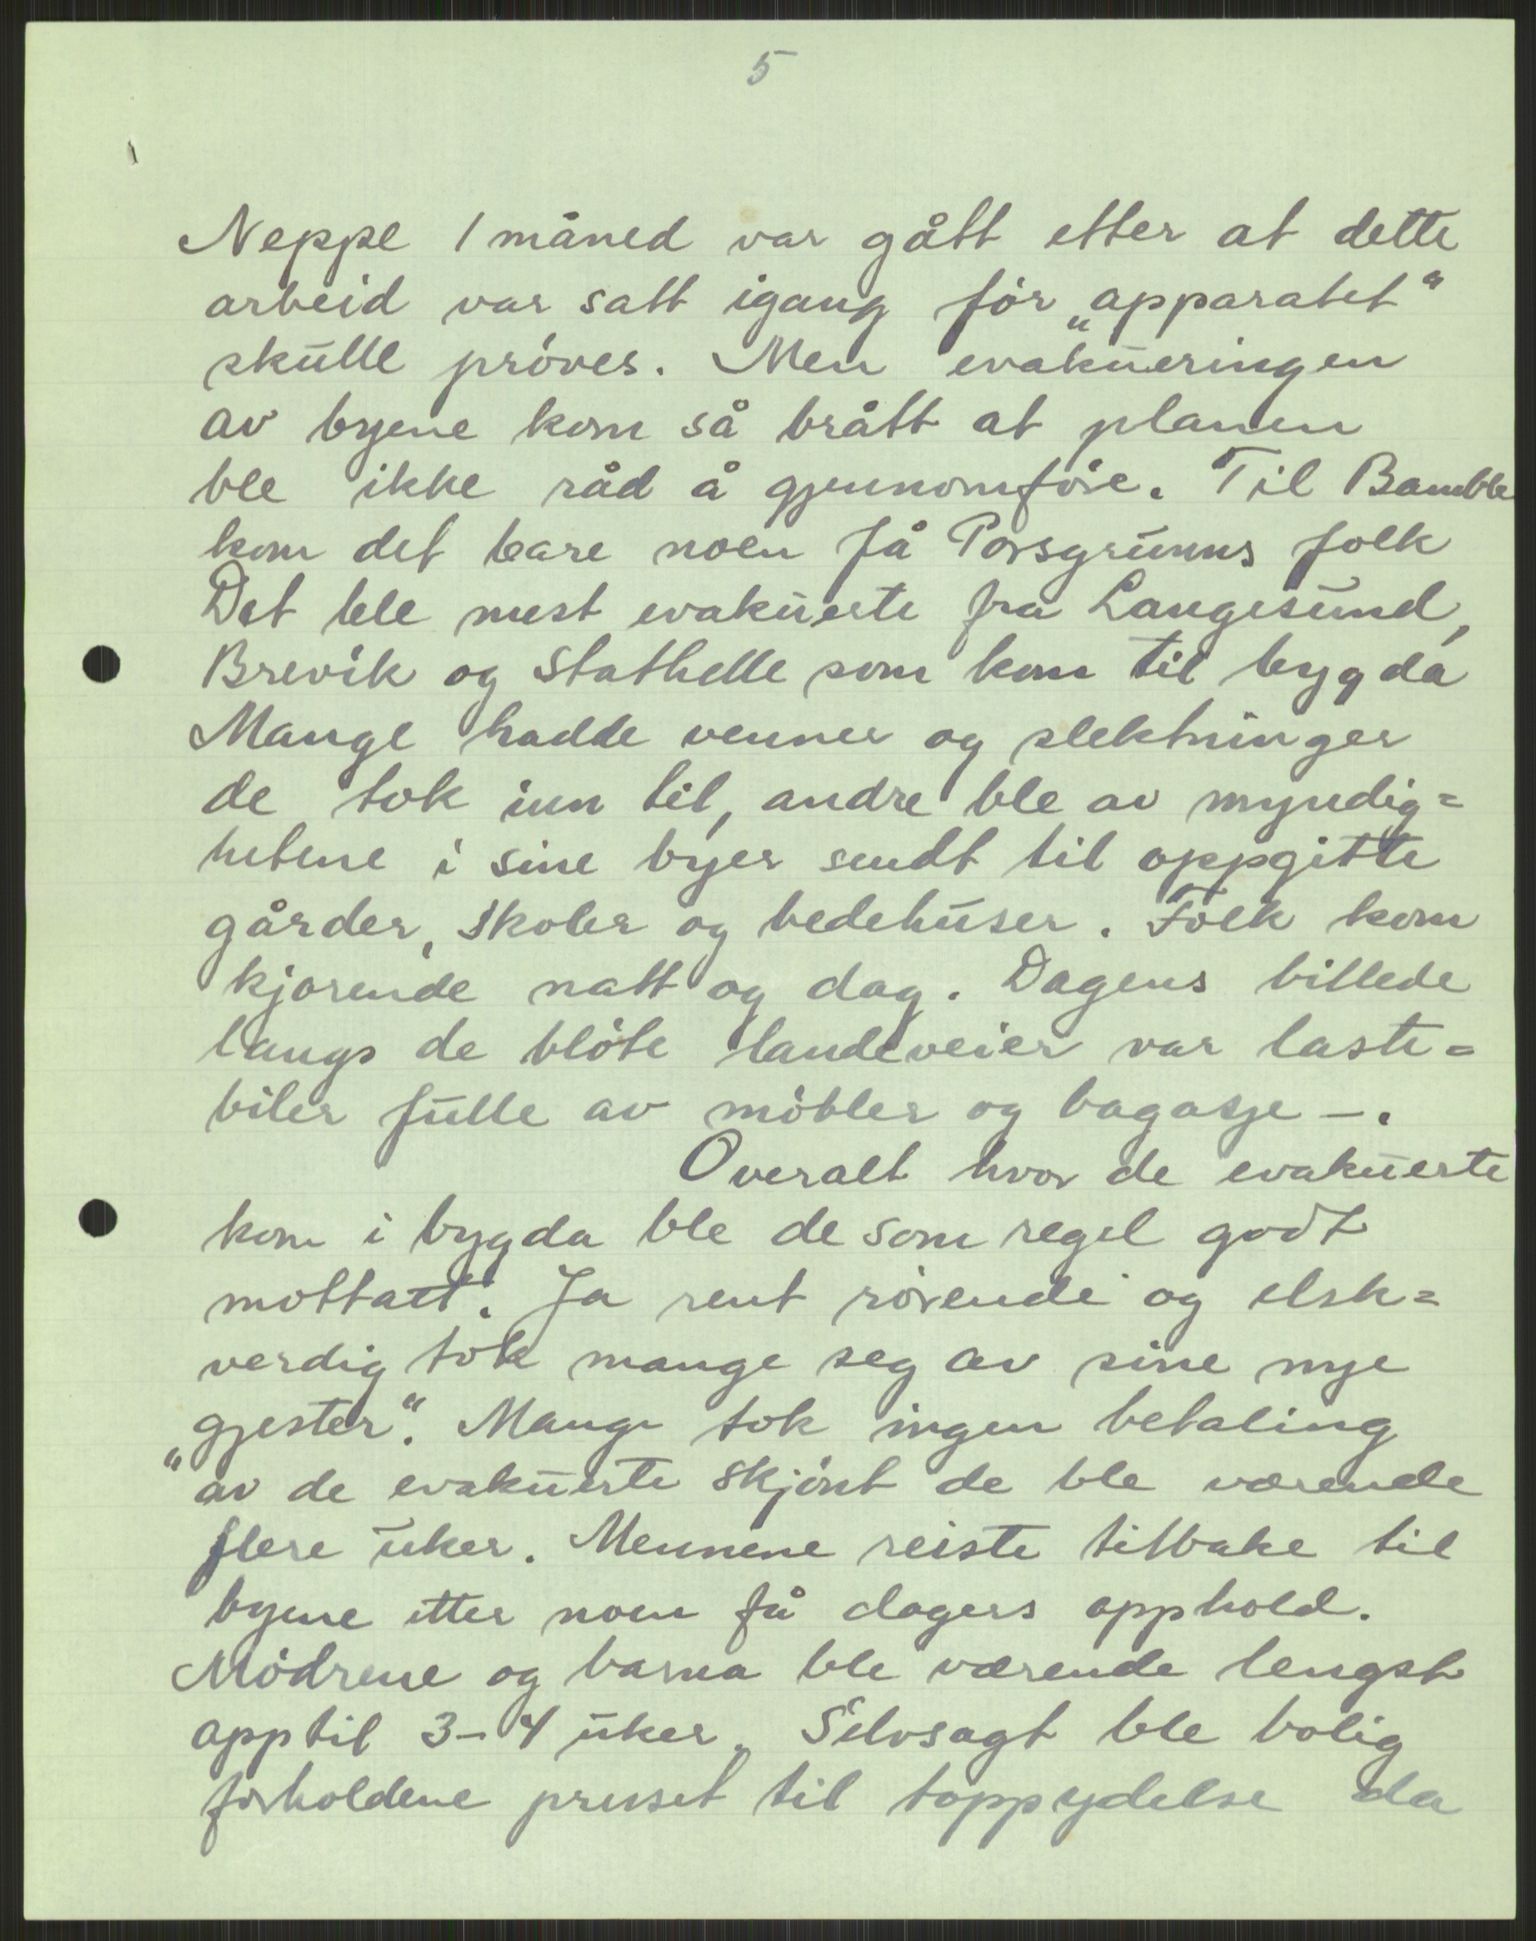 5
Neppe 1 måned var gått etter at dette
arbeid var satt igang før „apparatet“
skulle prøves. Men evakueringen
av byene kom så brått at planen
ble ikke råd å gjennomføre. Til Bamble
kom det bare noen få Porsgrunns folk
Det ble mest evakuerte fra Langesund,
Brevik og Stathelle som kom til bygda
Mange hadde venner og slektninger
de tok inn til, andre ble av myndig=
hetene i sine byer sendt til oppgitte
gårder, skoler og bedehuser. Folk kom
kjørende natt og dag. Dagens billede
langs de bløte landeveier var laste=
biler fulle av møbler og bagasje –.
Overalt hvor de evakuerte
kom i bygda ble de som regel godt
mottatt. Ja rent rørende og elsk=
verdig tok mange seg av sine nye
„gjester“. Mange tok ingen betaling
av de evakuerte skjønt de ble værende
flere uker. Mennene reiste tilbake til
byene etter noen få dagers opphold.
Mødrene og barna ble værende lengst
opptil 3-4 uker. Selvsagt ble bolig
forholdene presset til toppydelse da